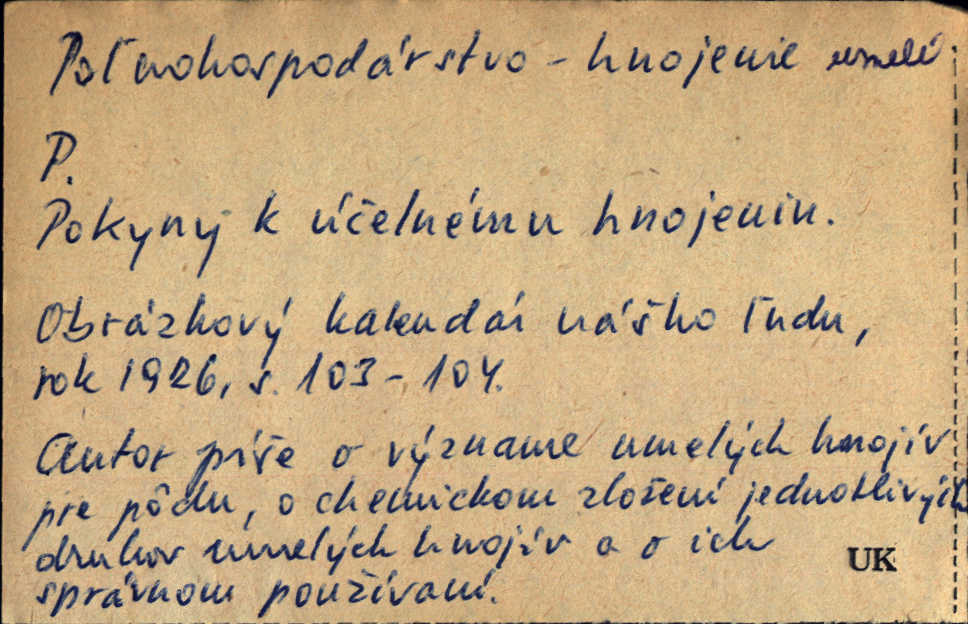 Poľnohospodárstvo - hnojenie umelé
P.
Pokyny k účelnému hnojeniu.
Obrázkový kalendár nášho ľudu,
rok 1926, s. 103-104.
Autor píše o význame umelých hnojív
pre pôdu, o chemickom zložení jednotlivých
druhov umelých hnojív a o ich
správnom používaní.
UK